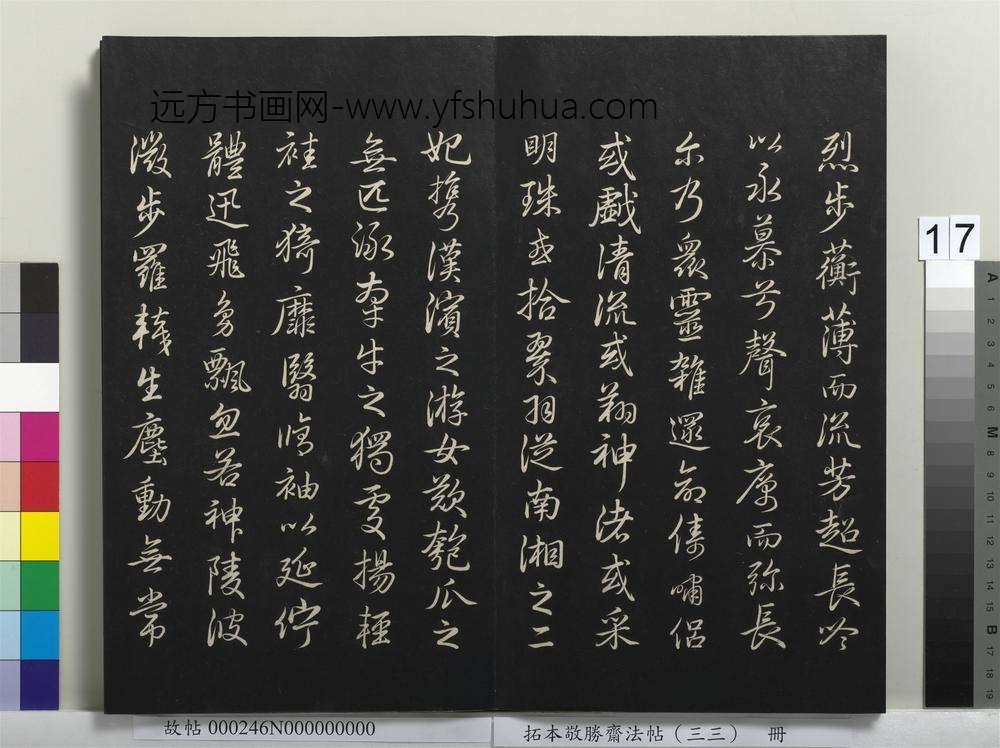 远方书画网-www.yfshuhua.com
烈步蘅薄而流芳超長吟
以永慕兮聲哀厲而弥長
尔乃衆靈雜遝命儔嘯侶
或戲清流或翔神渚或采
明珠或拾翠羽從南湘之二
妃攜漢濱之游女歎匏瓜之
無匹詠牽牛之獨處揚輕
袿之猗靡翳脩袖以延佇
體迅飛鳧飄忽若神陵波
微步羅韈生塵動無常
17
A 1 2 3 4 5 6 M 8 9 10 11 12 13 14 15 B 17 18 19
故帖 000246N000000000
拓本敬勝齋法帖(三三) 冊